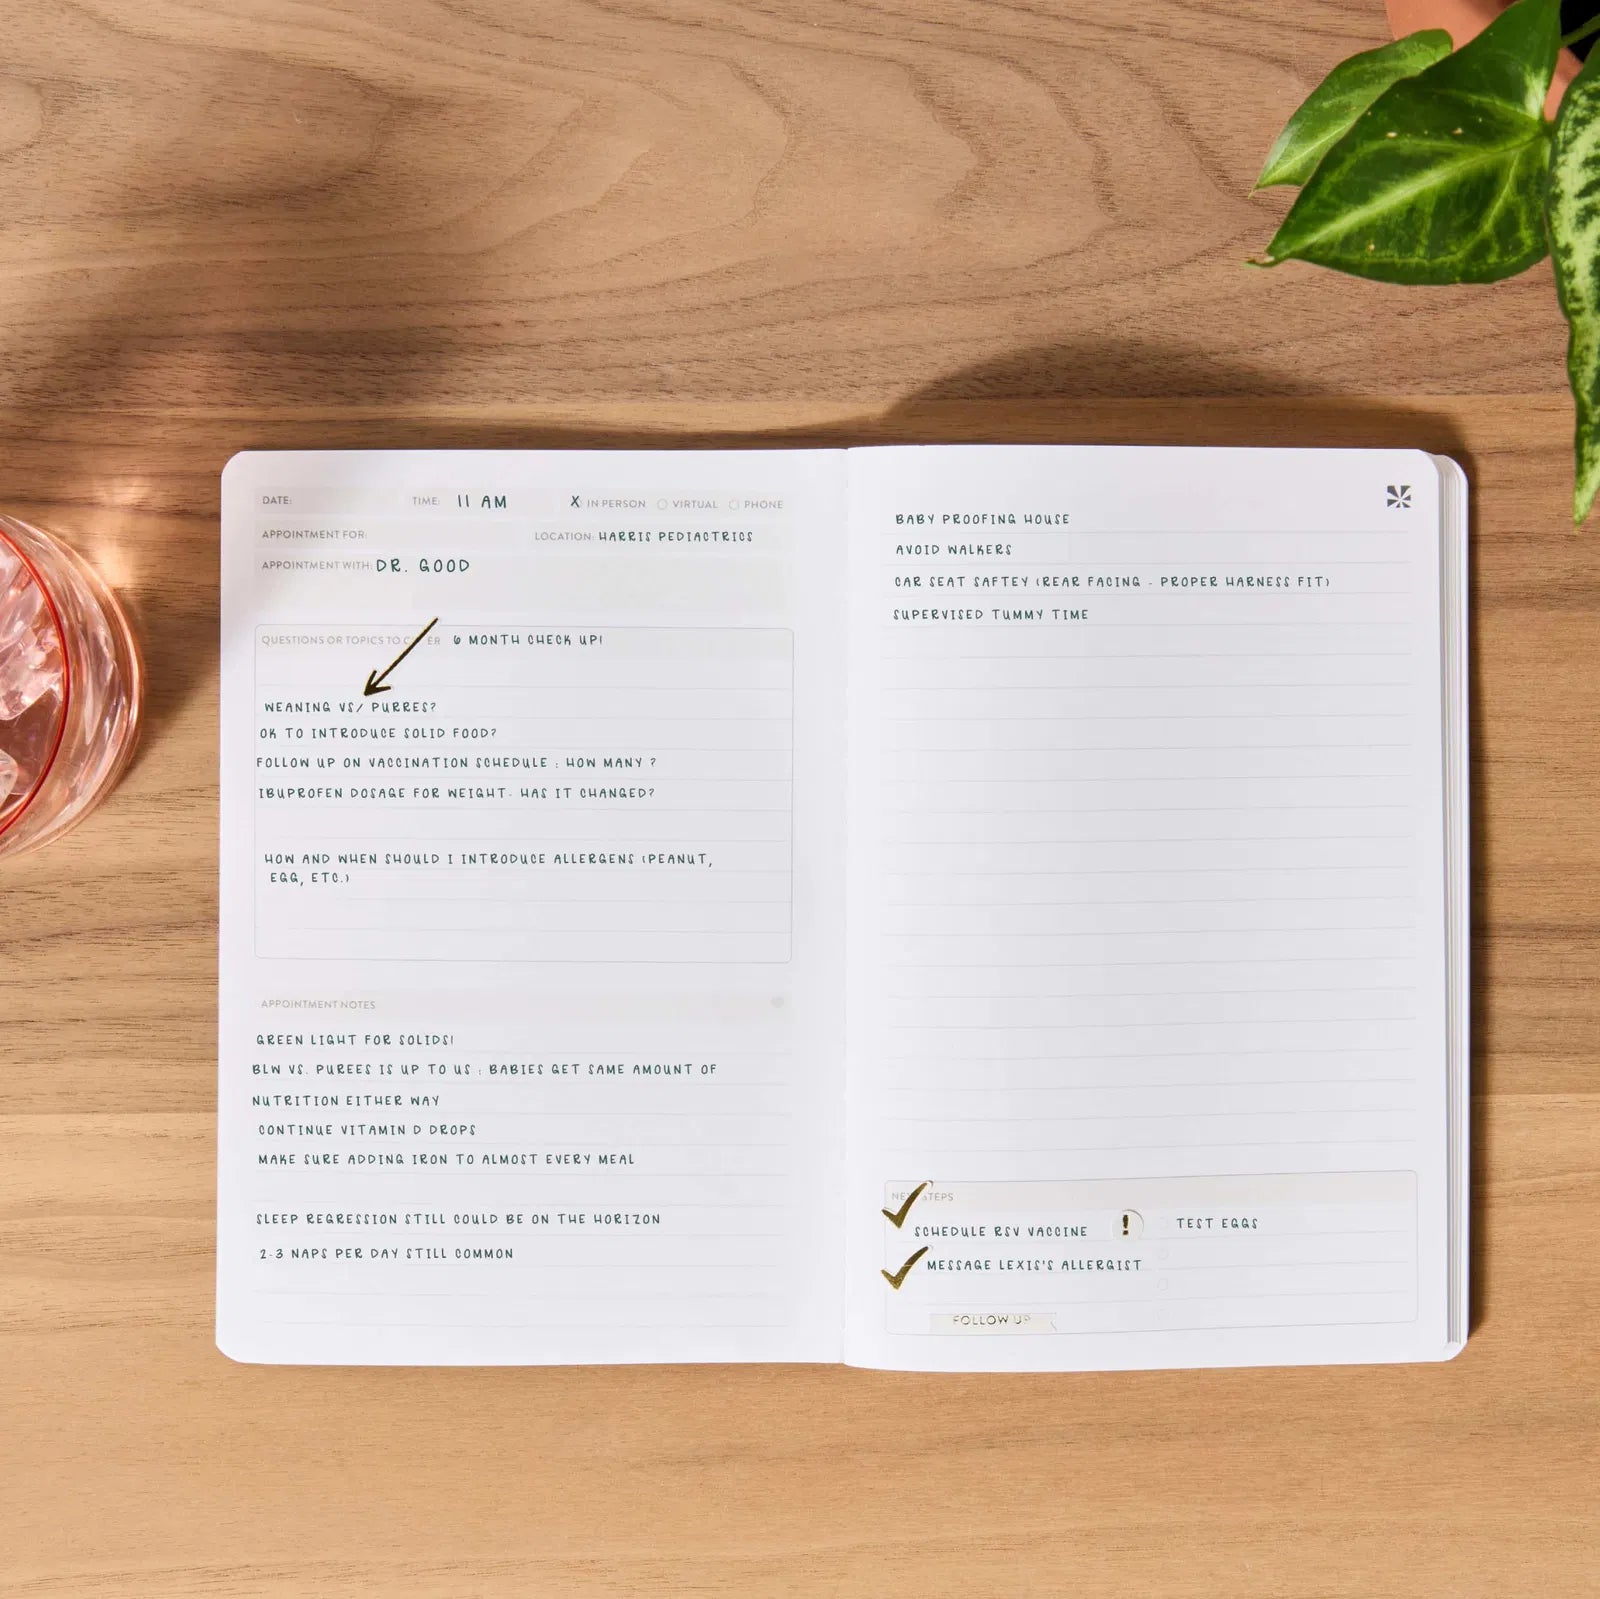 DATE:
TIME: 11 AM
X IN PERSON VIRTUAL PHONE
APPOINTMENT FOR:
LOCATION: HARRIS PEDIACTRICS
APPOINTMENT WITH: DR. GOOD
QUESTIONS OR TOPICS TO 6 MONTH CHECK UP!
WEANING VS/ PURRES?
OK TO INTRODUCE SOLID FOOD?
FOLLOW UP ON VACCINATION SCHEDULE : HOW MANY ?
IBUPROFEN DOSAGE FOR WEIGHT- HAS IT CHANGED?
HOW AND WHEN SHOULD I INTRODUCE ALLERGENS (PEANUT,
EGG, ETC.)
APPOINTMENT NOTES
GREEN LIGHT FOR SOLIDS!
BLW VS. PUREES IS UP TO US : BABIES GET SAME AMOUNT OF
NUTRITION EITHER WAY
CONTINUE VITAMIN D DROPS
MAKE SURE ADDING IRON TO ALMOST EVERY MEAL
SLEEP REGRESSION STILL COULD BE ON THE HORIZON
2-3 NAPS PER DAY STILL COMMON
BABY PROOFING HOUSE
AVOID WALKERS
CAR SEAT SAFTEY (REAR FACING - PROPER HARNESS FIT)
SUPERVISED TUMMY TIME
NEXT STEPS
SCHEDULE RSV VACCINE ! TEST EGGS
MESSAGE LEXIS'S ALLERGIST
FOLLOW UP